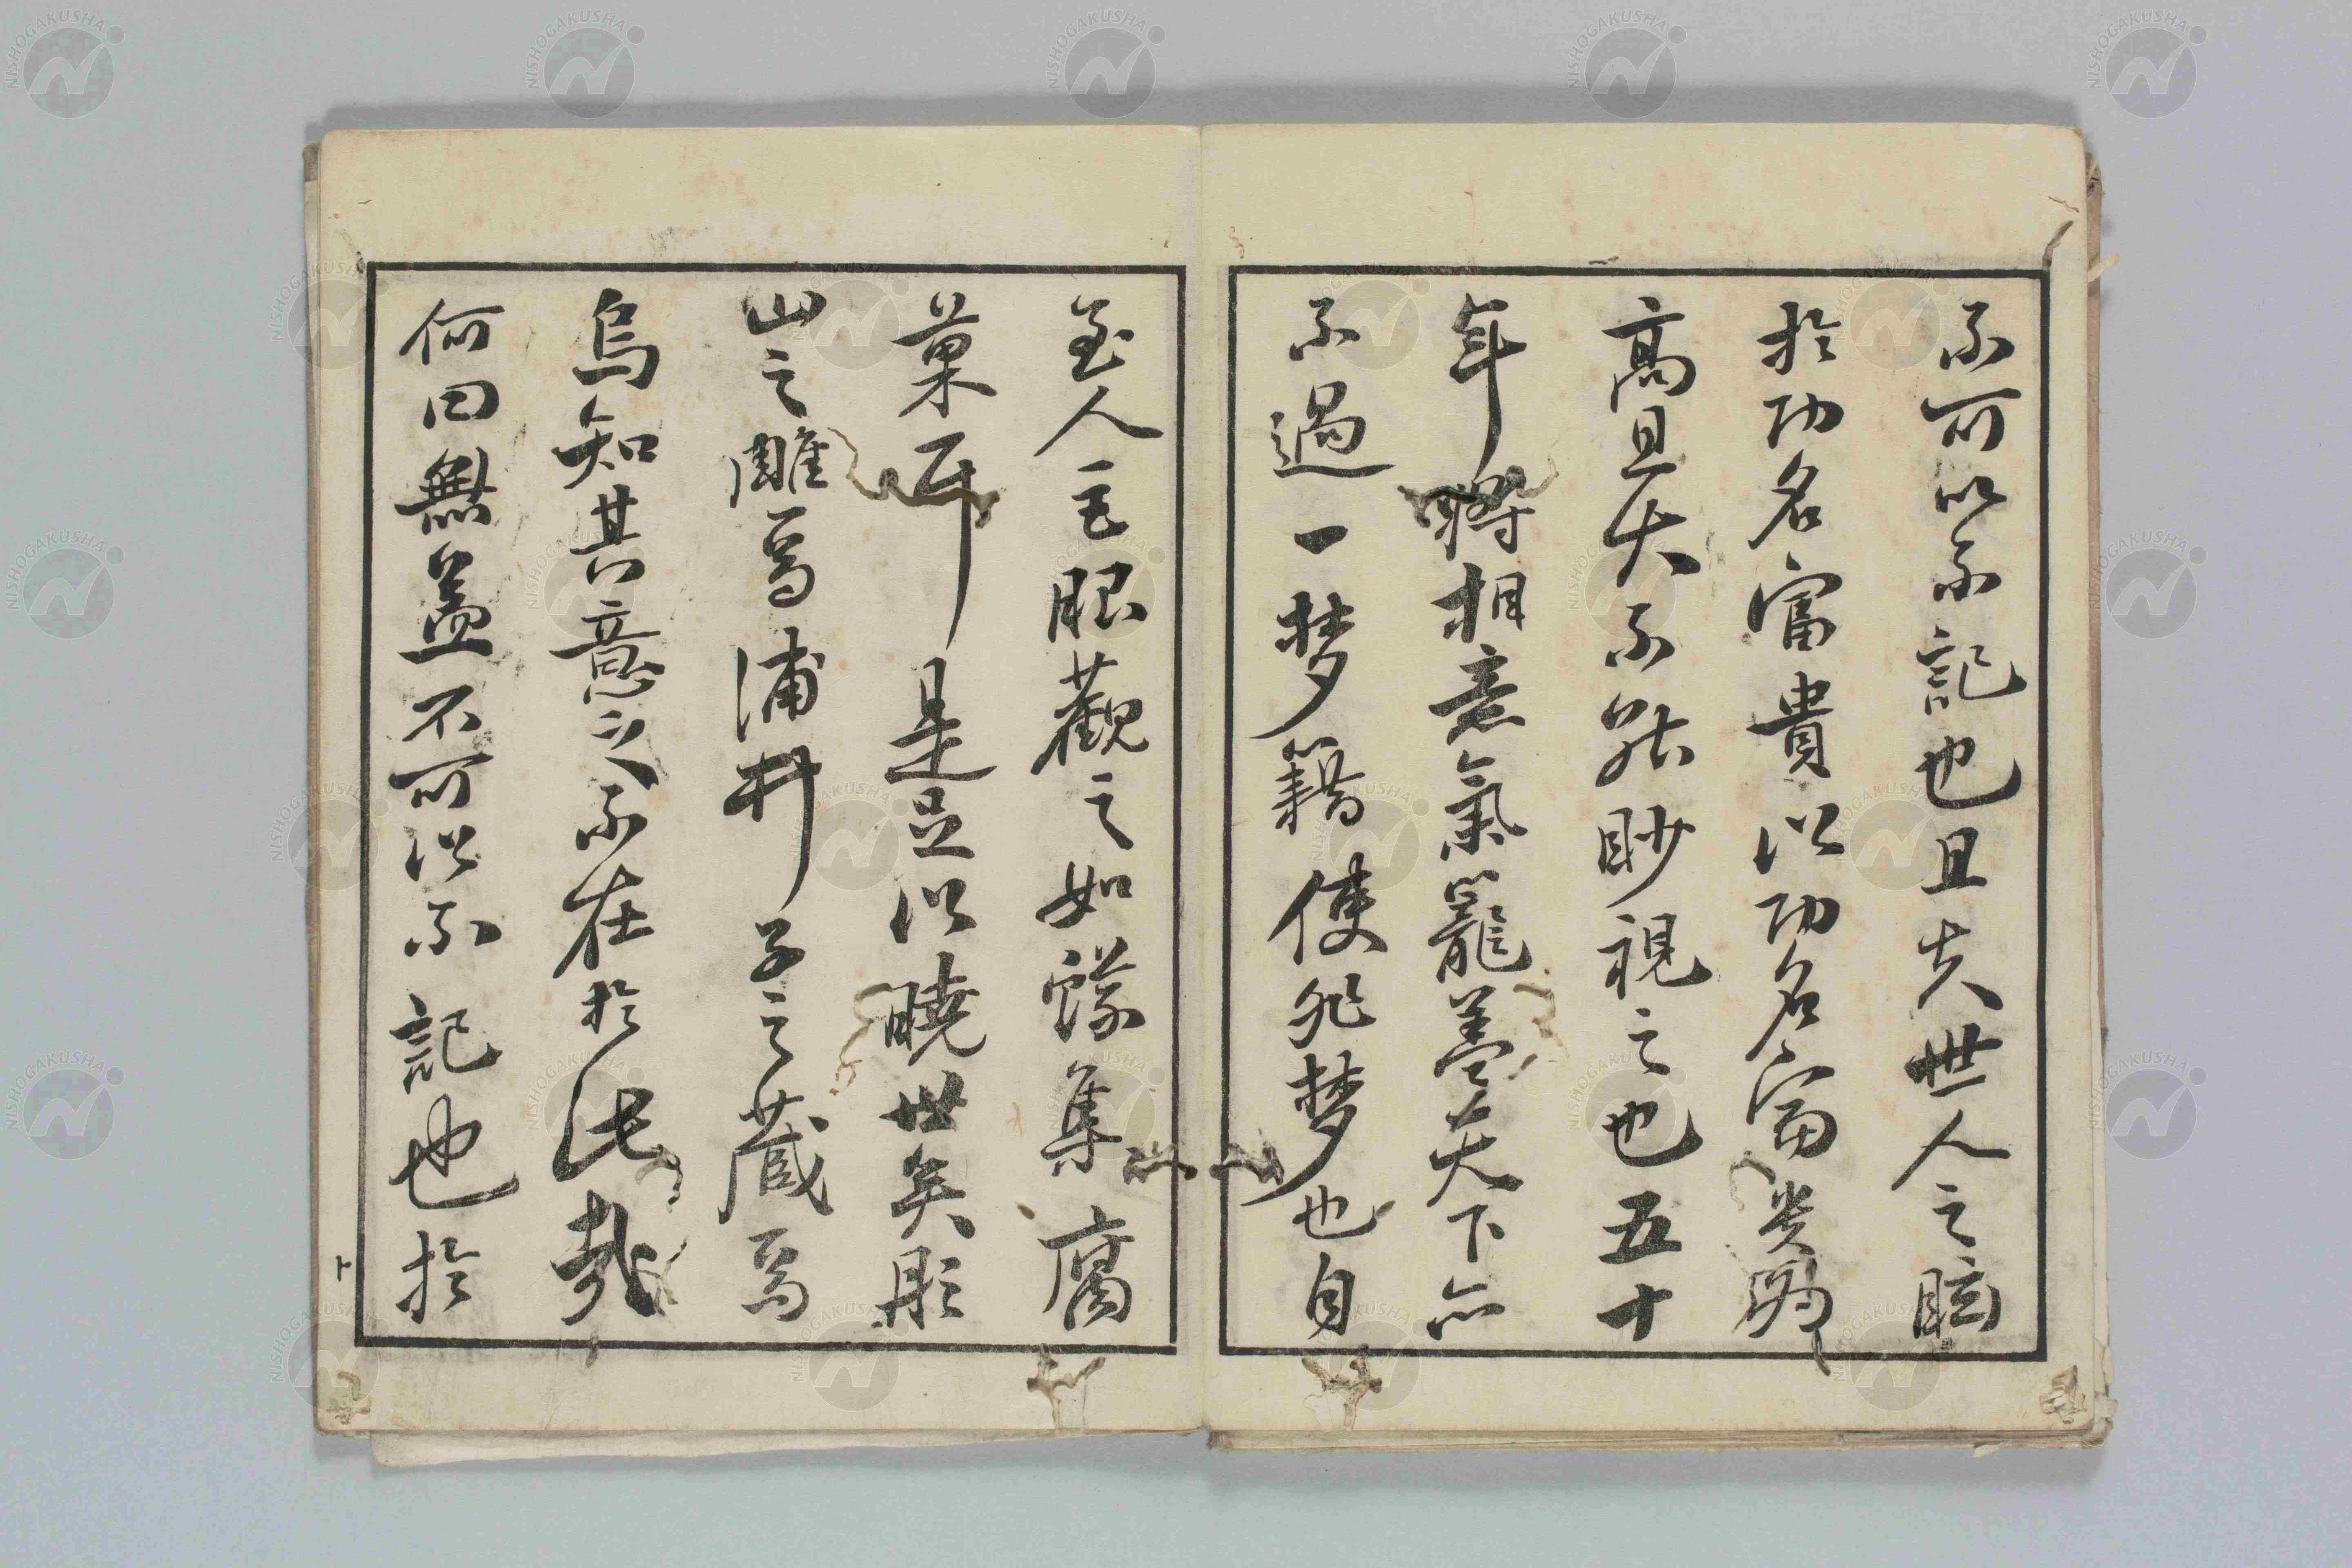 不可以不記也且夫世人之眩
於功名富貴以功名富貴為
高且大不能眇視之也五十
年將相意氣籠蓋天下亦
不過一梦籍使非梦也自
至人毛眼觀之如蟻集腐
菓耳是足以曉世矣彫
山之雕焉浦井子之蔵焉
烏知其意之不在於此哉
何曰無益不可以不記也於